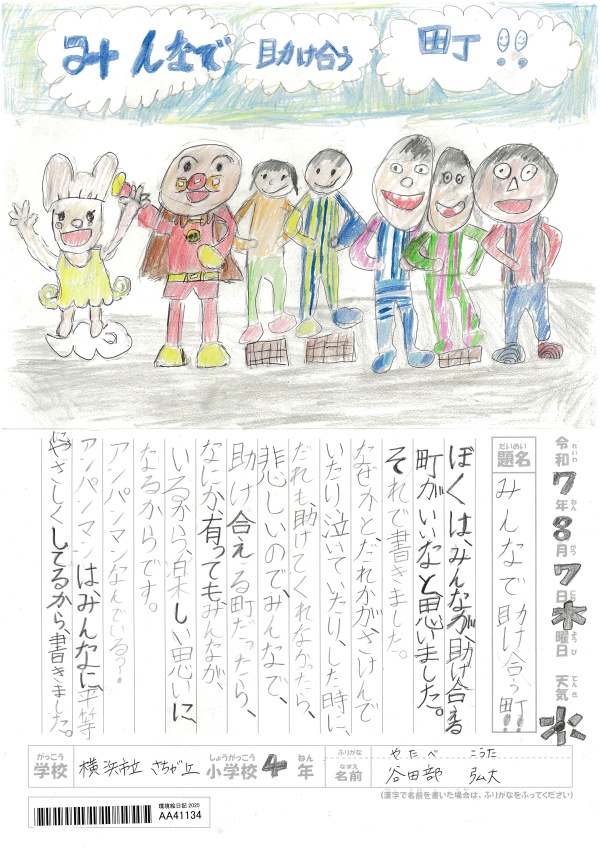 みんなで 助け合う 町!!
令和7年8月7日木曜日 天気
れいわ ねん がつ にち ようび てんき
だいめい
題名
みんなで助け合う町!!
ぼくは、みんなが、助け合える
町がいいなと思いました。
それで書きました。
なぜかと、だれかがさけんで
いたり、泣いていたり、した時に、
だれも、助けてくれなかったら、
悲しいので、みんなで、
助け合える町だったら、
なにか、有ってもみんなが、
いるから、楽しい思いに、
なるからです。
アンパンマンなんでいる?
アンパンマンは、みんなに、平等
にやさしくしてるから、書きました。
がっこう しょうがっこう ねん
学校 横浜市立 さちが丘 小学校 4年
ふりがな やたべ こうた
なまえ
名前 谷田部 弘太
(漢字で名前を書いた場合は、ふりがなをふってください)
環境絵日記 2025
AA41134